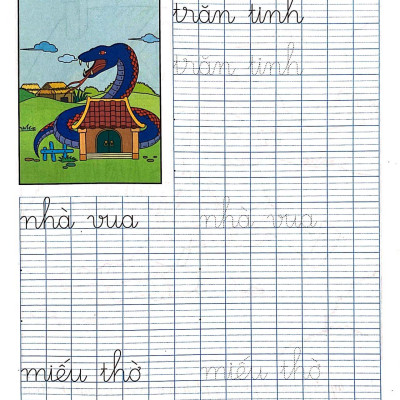 trăn tinh
trăn tinh
nhà vua nhà vua
miếu thờ miếu thờ